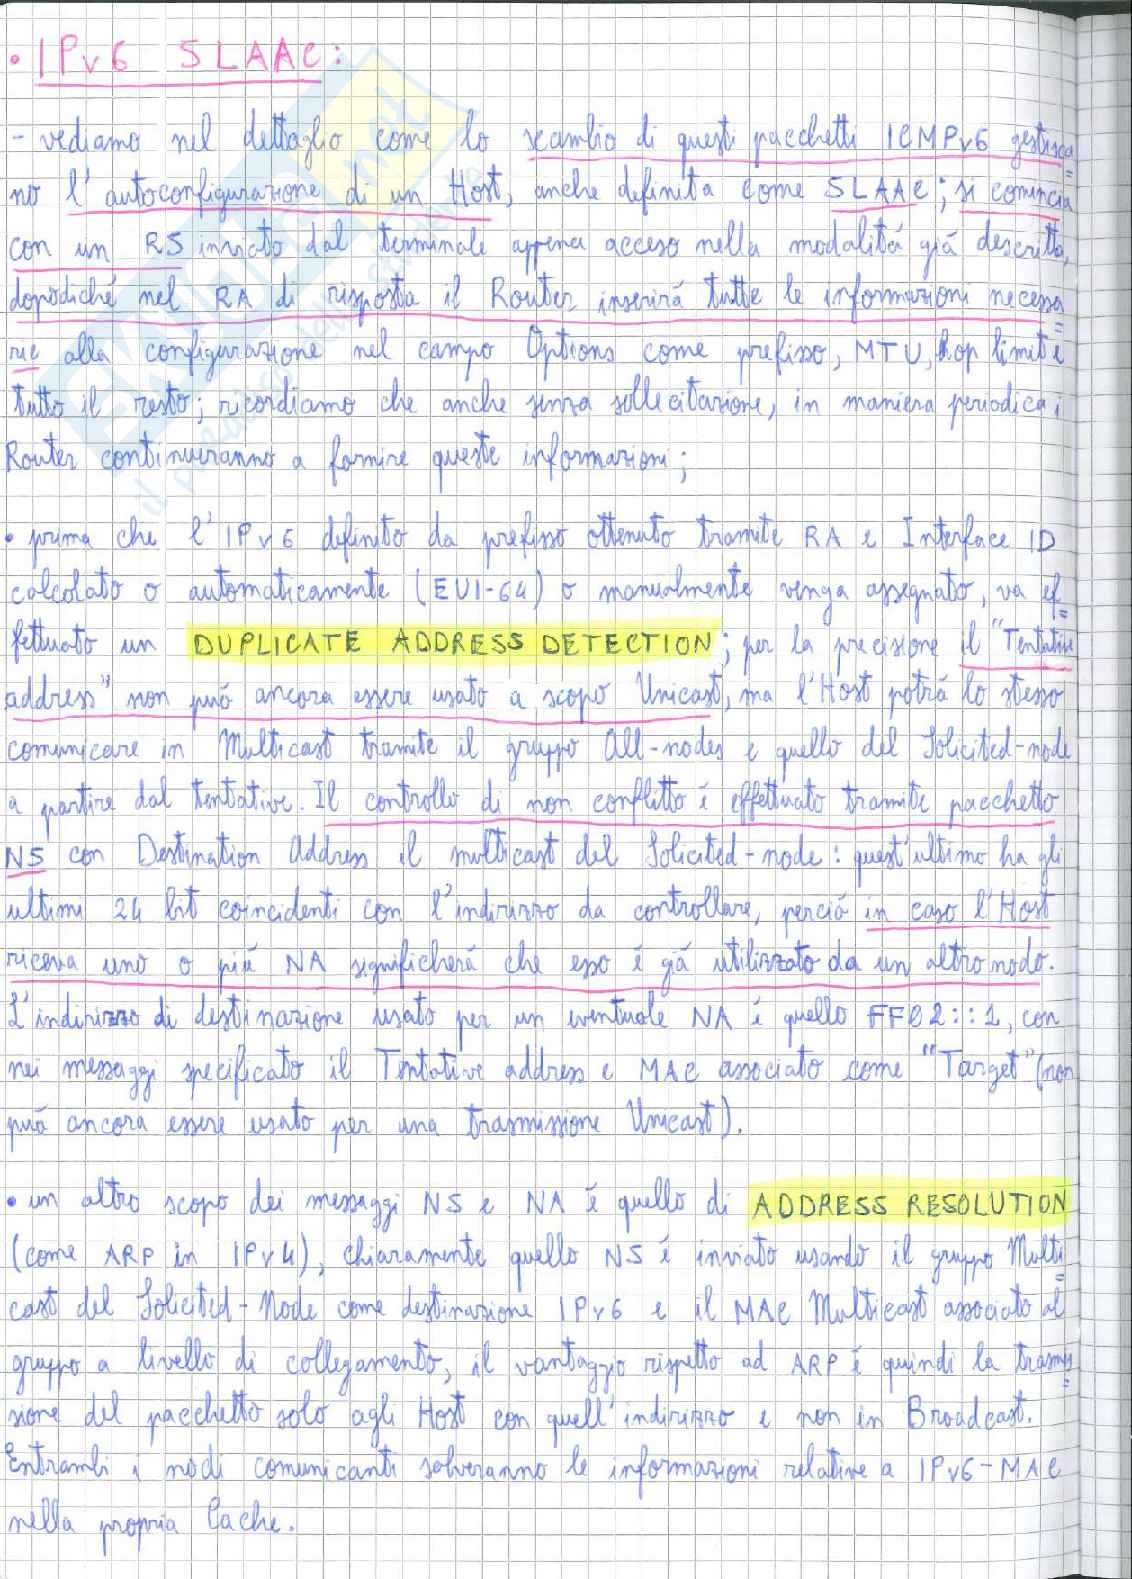 • IPv6 SLAAC:
- vediamo nel dettaglio come lo scambio di questi pacchetti ICMPv6 gestisca=
no l'autoconfigurazione di un Host, anche definita come SLAAC; si comincia
con un RS inviato dal terminale appena acceso nella modalitá giá descritta,
dopodiché nel RA di risposta il Router inserirá tutte le informazioni necessa=
rie alla configurazione nel campo Options come prefisso, MTU, hop limit e
tutto il resto; ricordiamo che anche senza sollecitazione, in maniera periodica i
Router continueranno a fornire queste informazioni;
• prima che l'IPv6 definito da prefisso ottenuto tramite RA e Interface ID
calcolato o automaticamente (EUI-64) o manualmente venga assegnato, va ef=
fettuato un DUPLICATE ADDRESS DETECTION; per la precisione il "Tentative
address" non puó ancora essere usato a scopo Unicast, ma l'Host potrá lo stesso
comunicare in Multicast tramite il gruppo All-nodes e quello del Solicited-node
a partire dal tentative. Il controllo di non conflitto é effettuato tramite pacchetto
NS con Destination Address il multicast del Solicited-node: quest'ultimo ha gli
ultimi 24 bit coincidenti con l'indirizzo da controllare, perció in caso l'Host
riceva uno o piú NA significherá che esso é giá utilizzato da un altro nodo.
L'indirizzo di destinazione usato per un eventuale NA é quello FF02::1, con
nei messaggi specificato il Tentative address e MAC associato come "Target" (non
puó ancora essere usato per una trasmissione Unicast).
• un altro scopo dei messaggi NS e NA é quello di ADDRESS RESOLUTION
(come ARP in IPv4), chiaramente quello NS é inviato usando il gruppo Multi=
cast del Solicited-Node come destinazione IPv6 e il MAC Multicast associato al
gruppo a livello di collegamento, il vantaggio rispetto ad ARP é quindi la trasmis=
sione del pacchetto solo agli Host con quell'indirizzo e non in Broadcast.
Entrambi i nodi comunicanti salveranno le informazioni relative a IPv6-MAC
nella propria Cache.